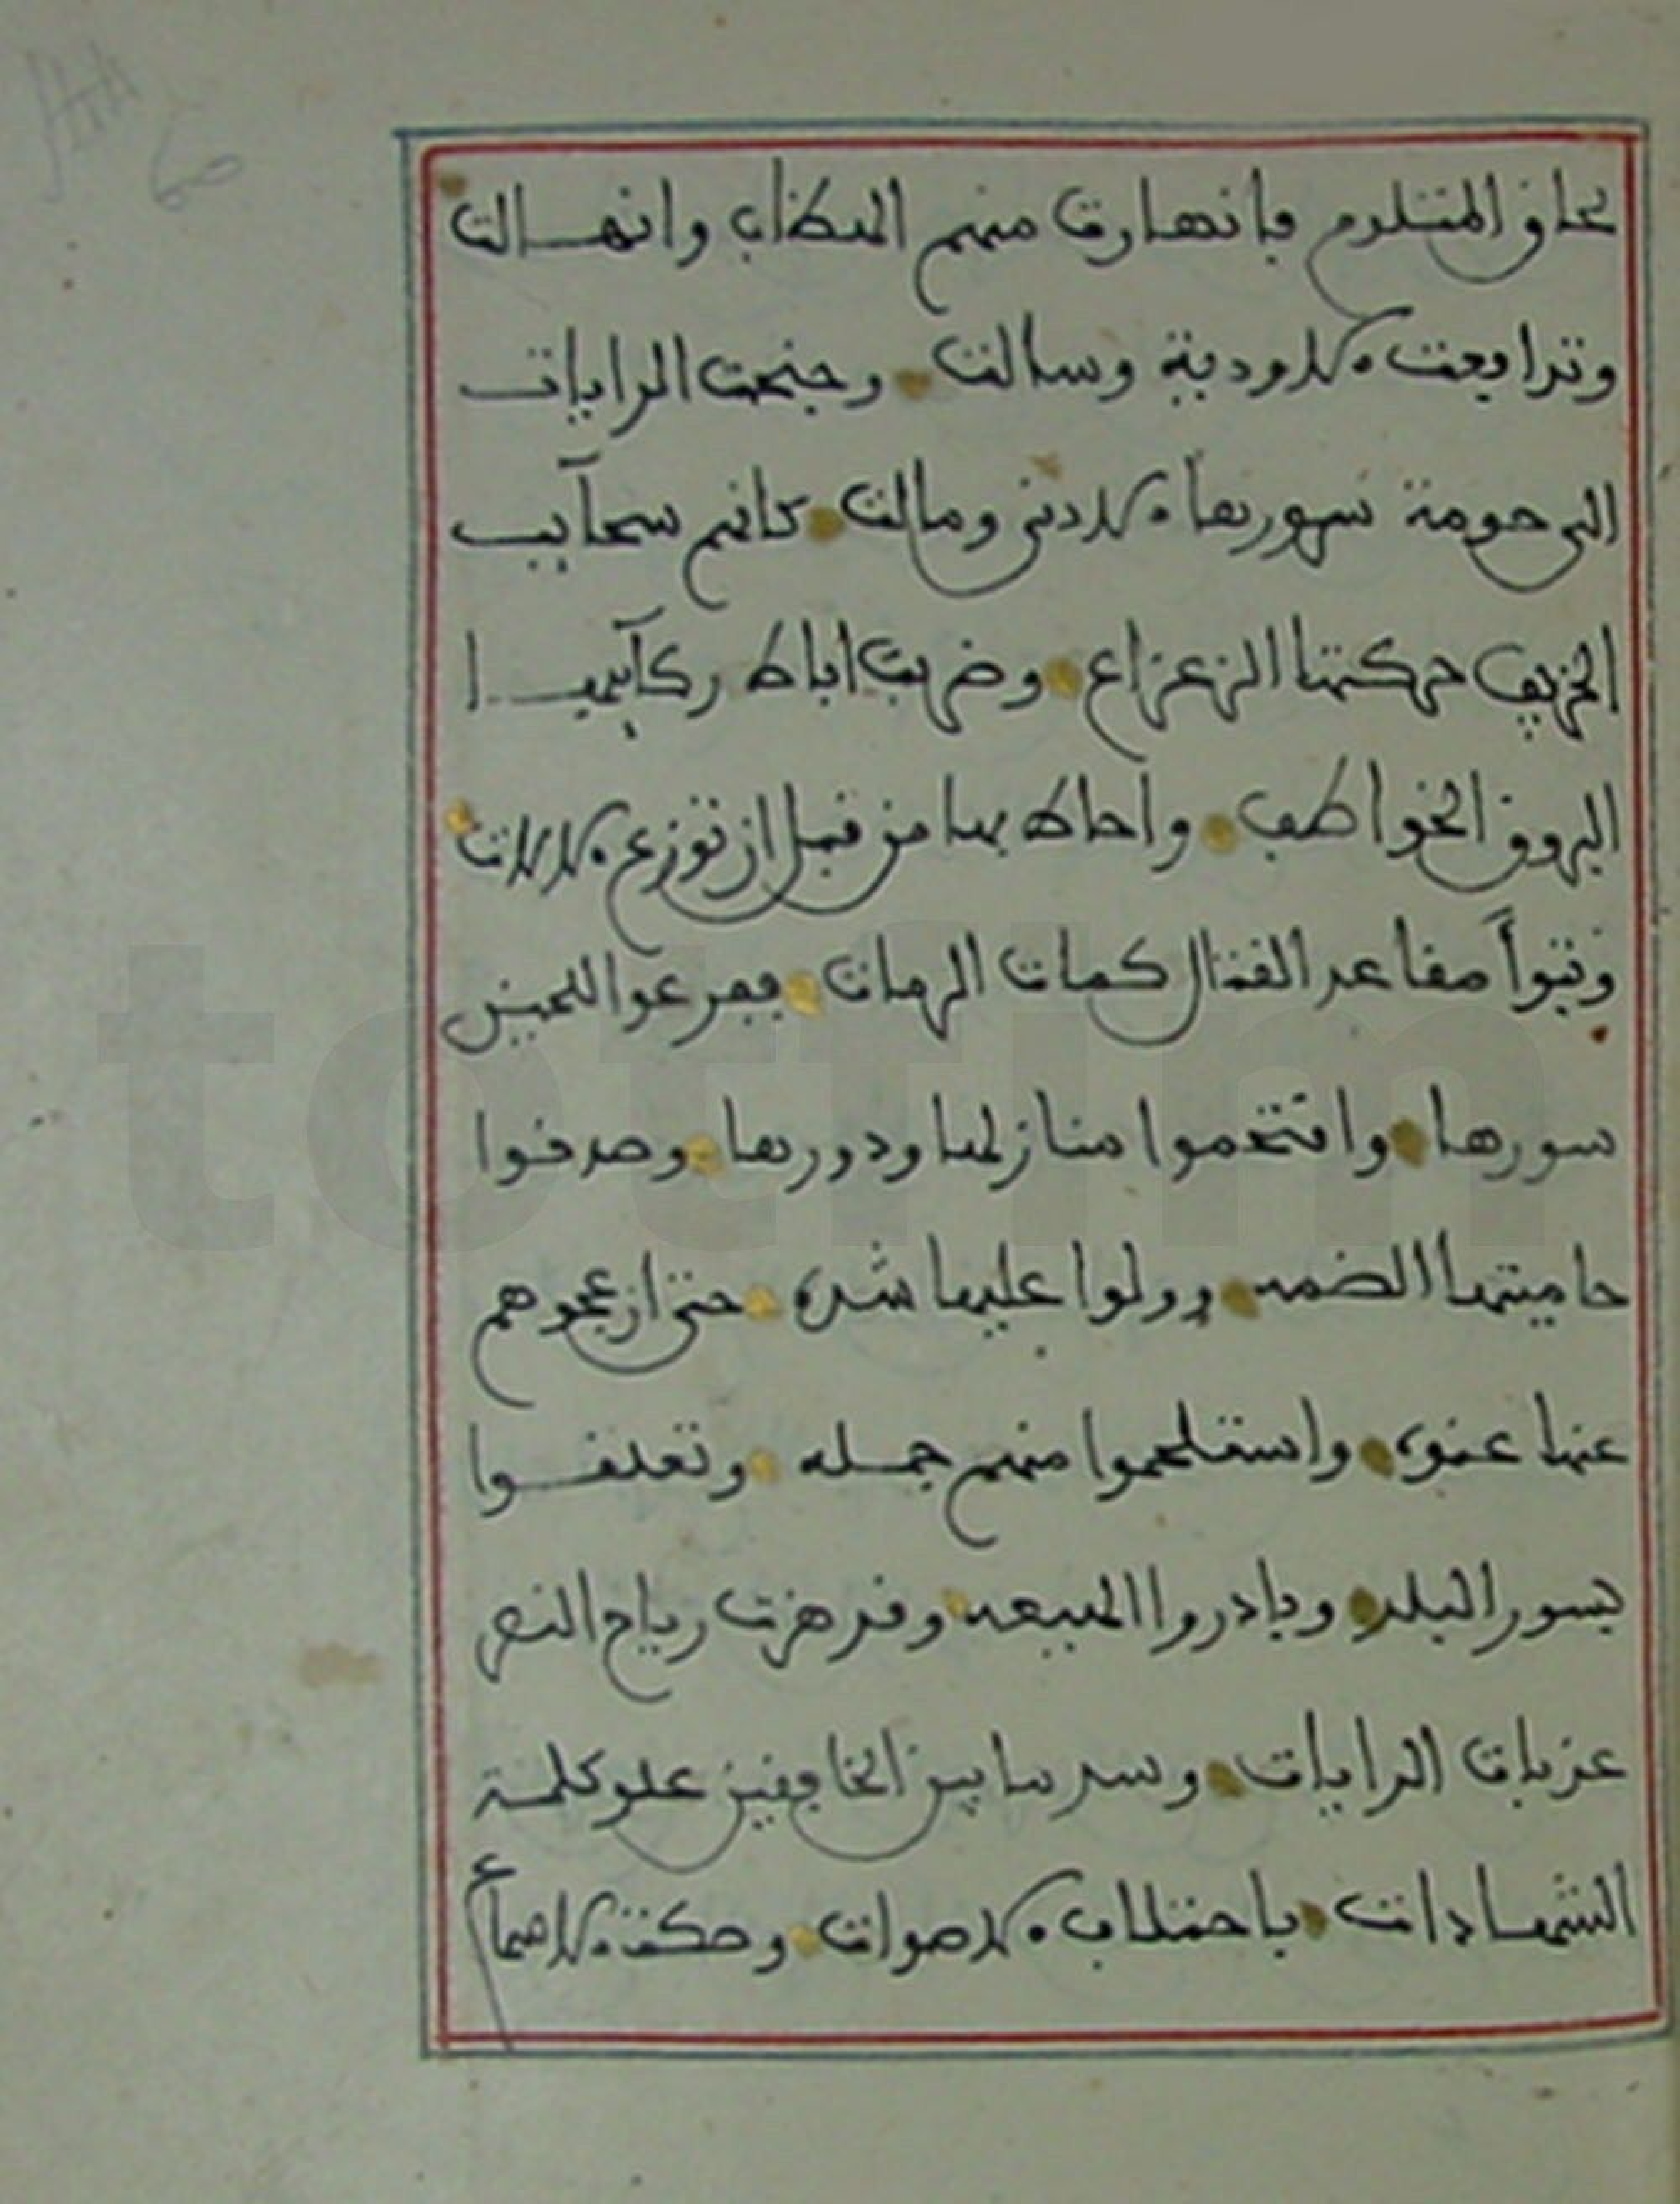 لحاق المتلوم فانهارت منهم الهضاب وانهالت
وترافعت الاودية وسالت وجنحت الرايات
الى حومة سورها الادنى ومالت كانهم سحآيب
الخريف حركتها الزعزاع وضربت اباط ركآيبها
البروق الخواطف واحاط بها من قبل ان توزع الالات
وتبوأ مقاعد القتال كمات الرمات ففرعوا للحين
سورها واقتحموا منازلها ودورها وصدقوا
حاميتها الصدمه وولوا عليها شده حتى ازعجوهم
عنها عنوة واستلحموا منهم جمله وتعلقوا
بسور البلد وبادروا وقد هزت رياح النصر
عذبات الرايات وسد ما بين الخافقين علو كلمة
الشهادات باختلاف الاصوات وصكت الاسماع
60
totfim